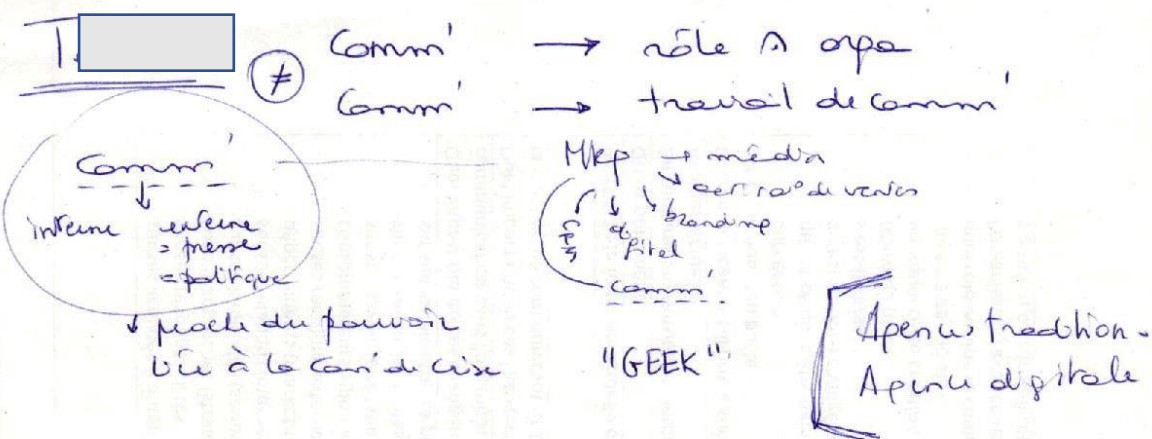 T.
≠ Comm' → rôle ds orga
Comm' → travail de comm'
Comm'
interne externe
= presse
= politique
↓ proche du pouvoir
liée à la com' de crise
Mkg → média
de ventes
branding
digital
comm'
"GEEK"
Agences tradition.
Agence digitale